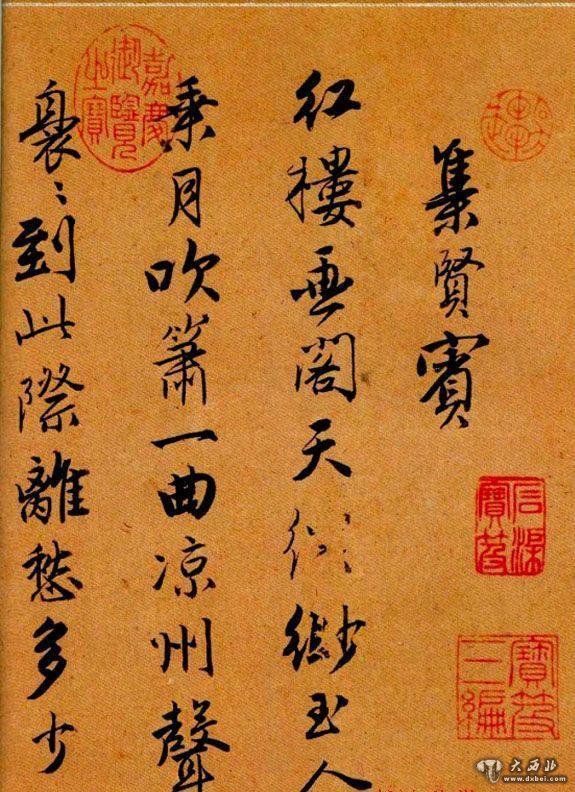 集賢賓
紅樓画閣天縹緲玉人
乘月吹簫一曲凉州聲
裊〻到此際離愁多少
嘉慶御覽之寶
石渠寶笈
寶笈三編
大西北
www.dxbei.com